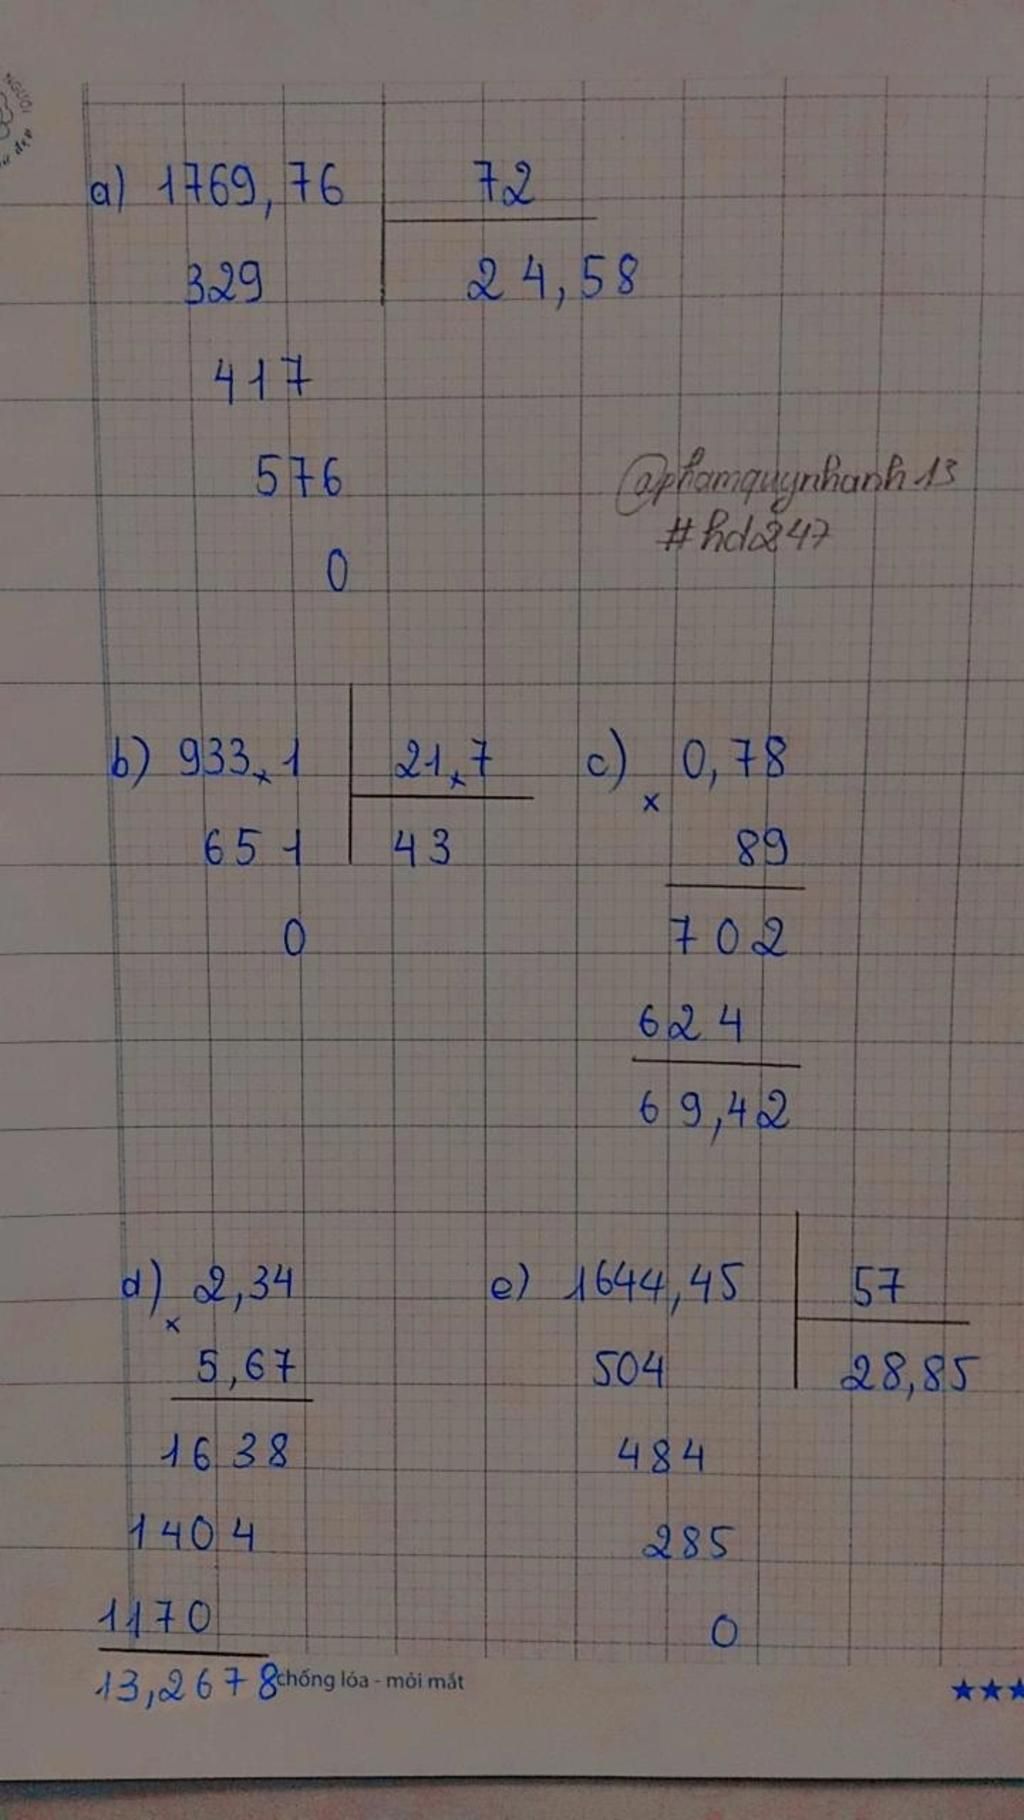 NGƯỜI
a) 1769,76 72
329 24,58
417
576
0
@phamquynhanh13
#hd247
b) 933,1 21,7
651 43
0
c) 0,78
×
89
702
624
69,42
d) 2,34
×
5,67
1638
1404
1170
13,2678
e) 1644,45 57
504 28,85
484
285
0
chống lóa - mỏi mắt